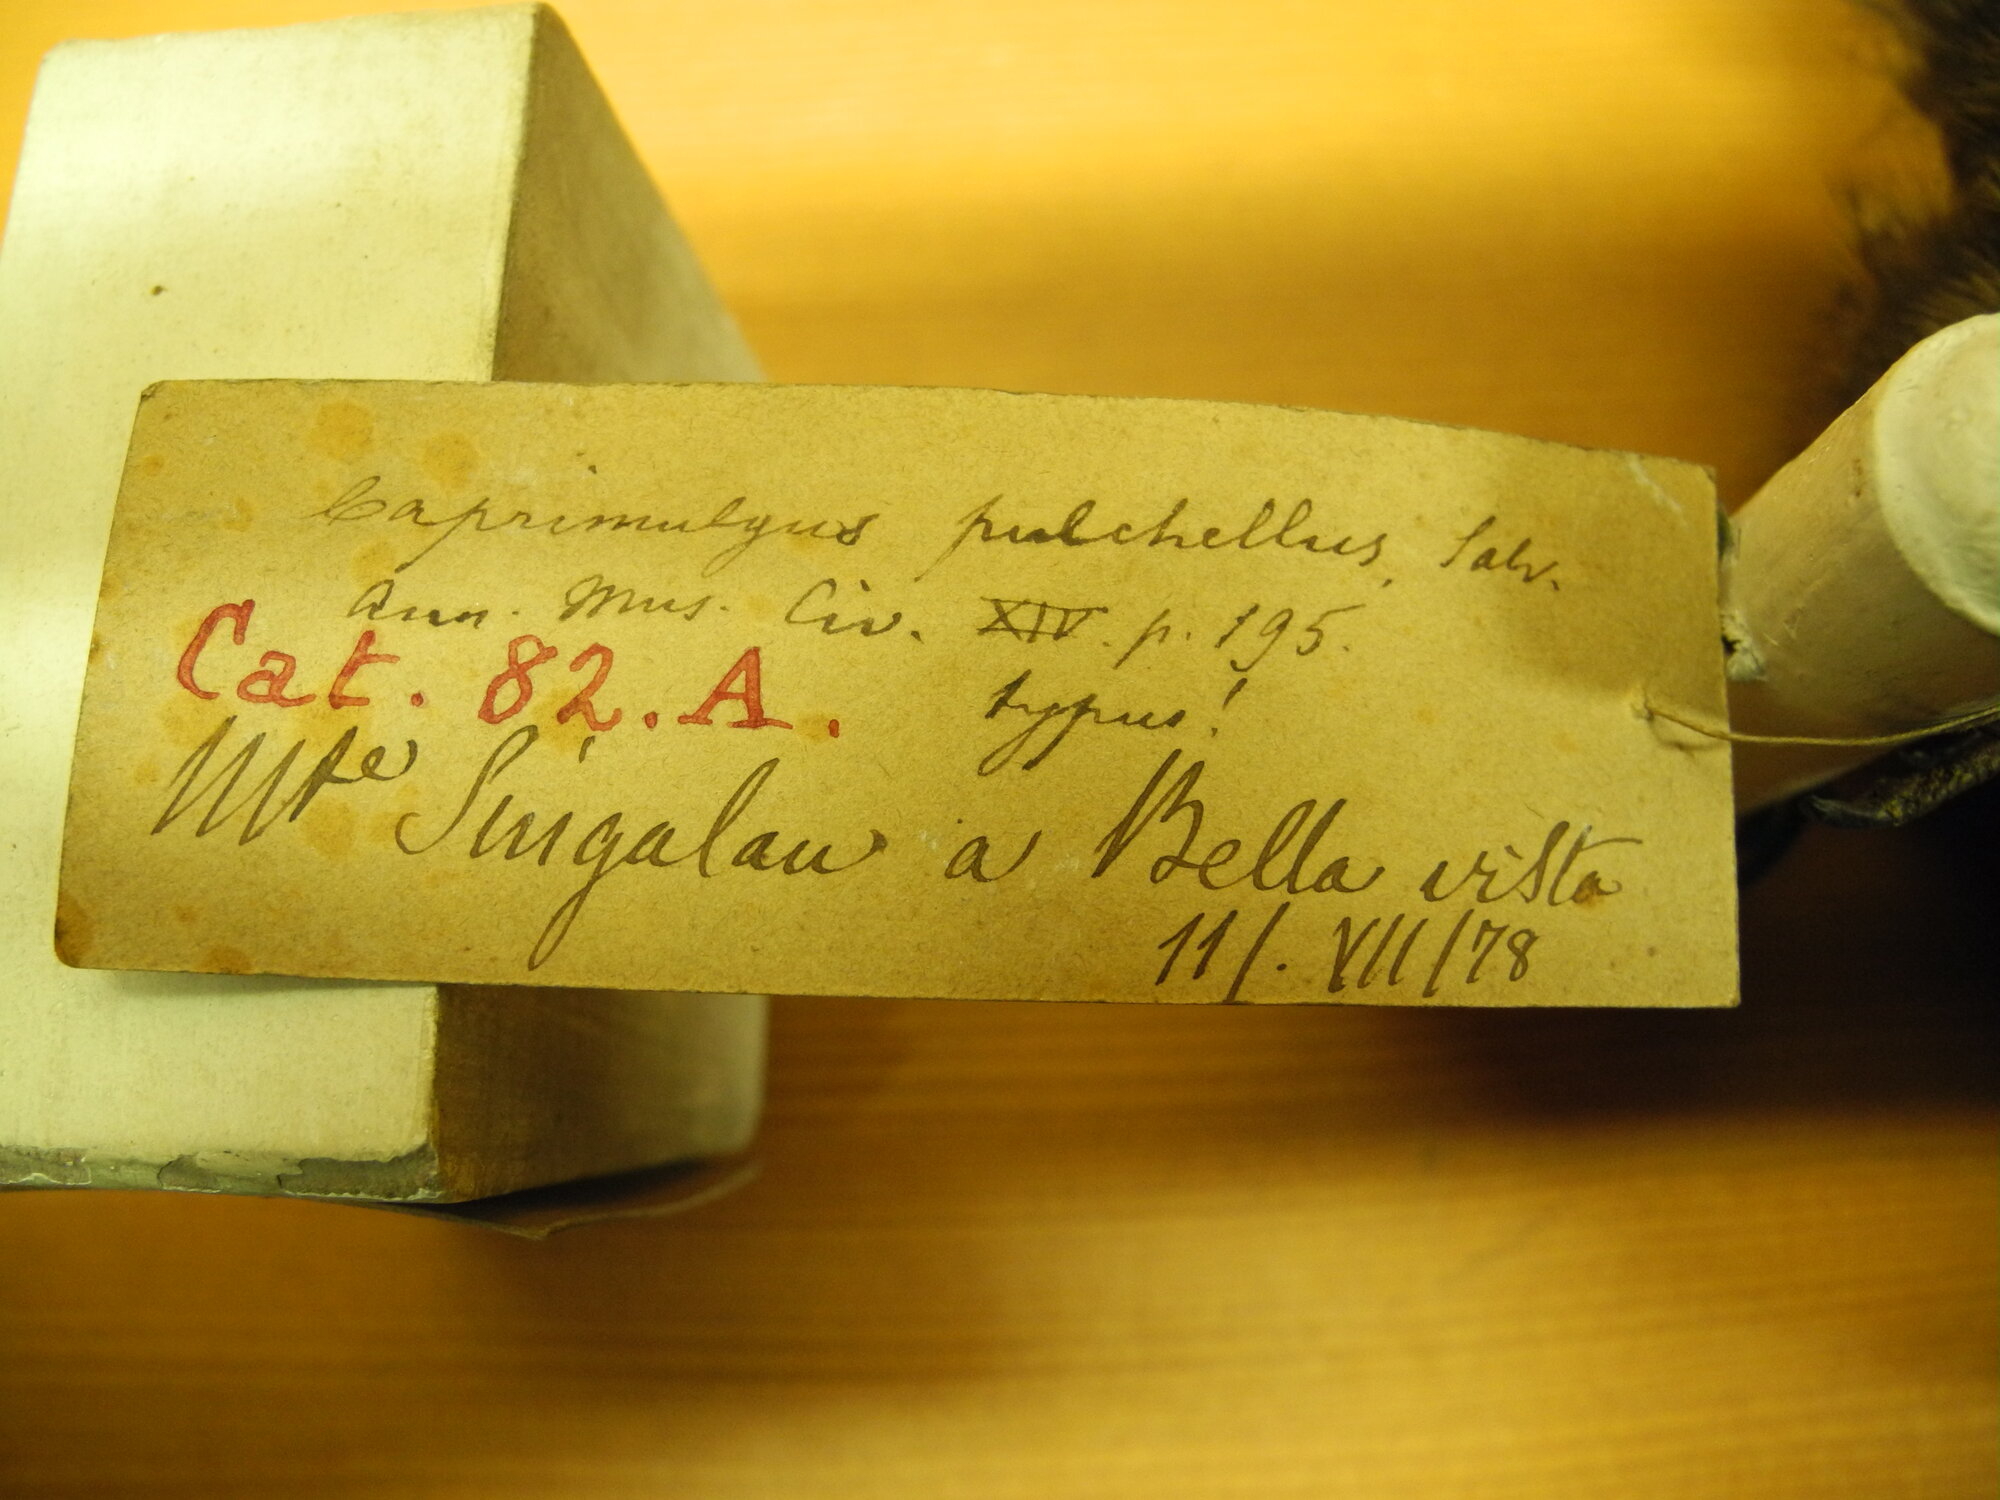 Caprimulgus pulchellus, Salv.
Ann. Mus. Civ. XIV. p. 195.
Cat. 82. A. typus!
Mte Singalan a Bella vista
11/. VII/78